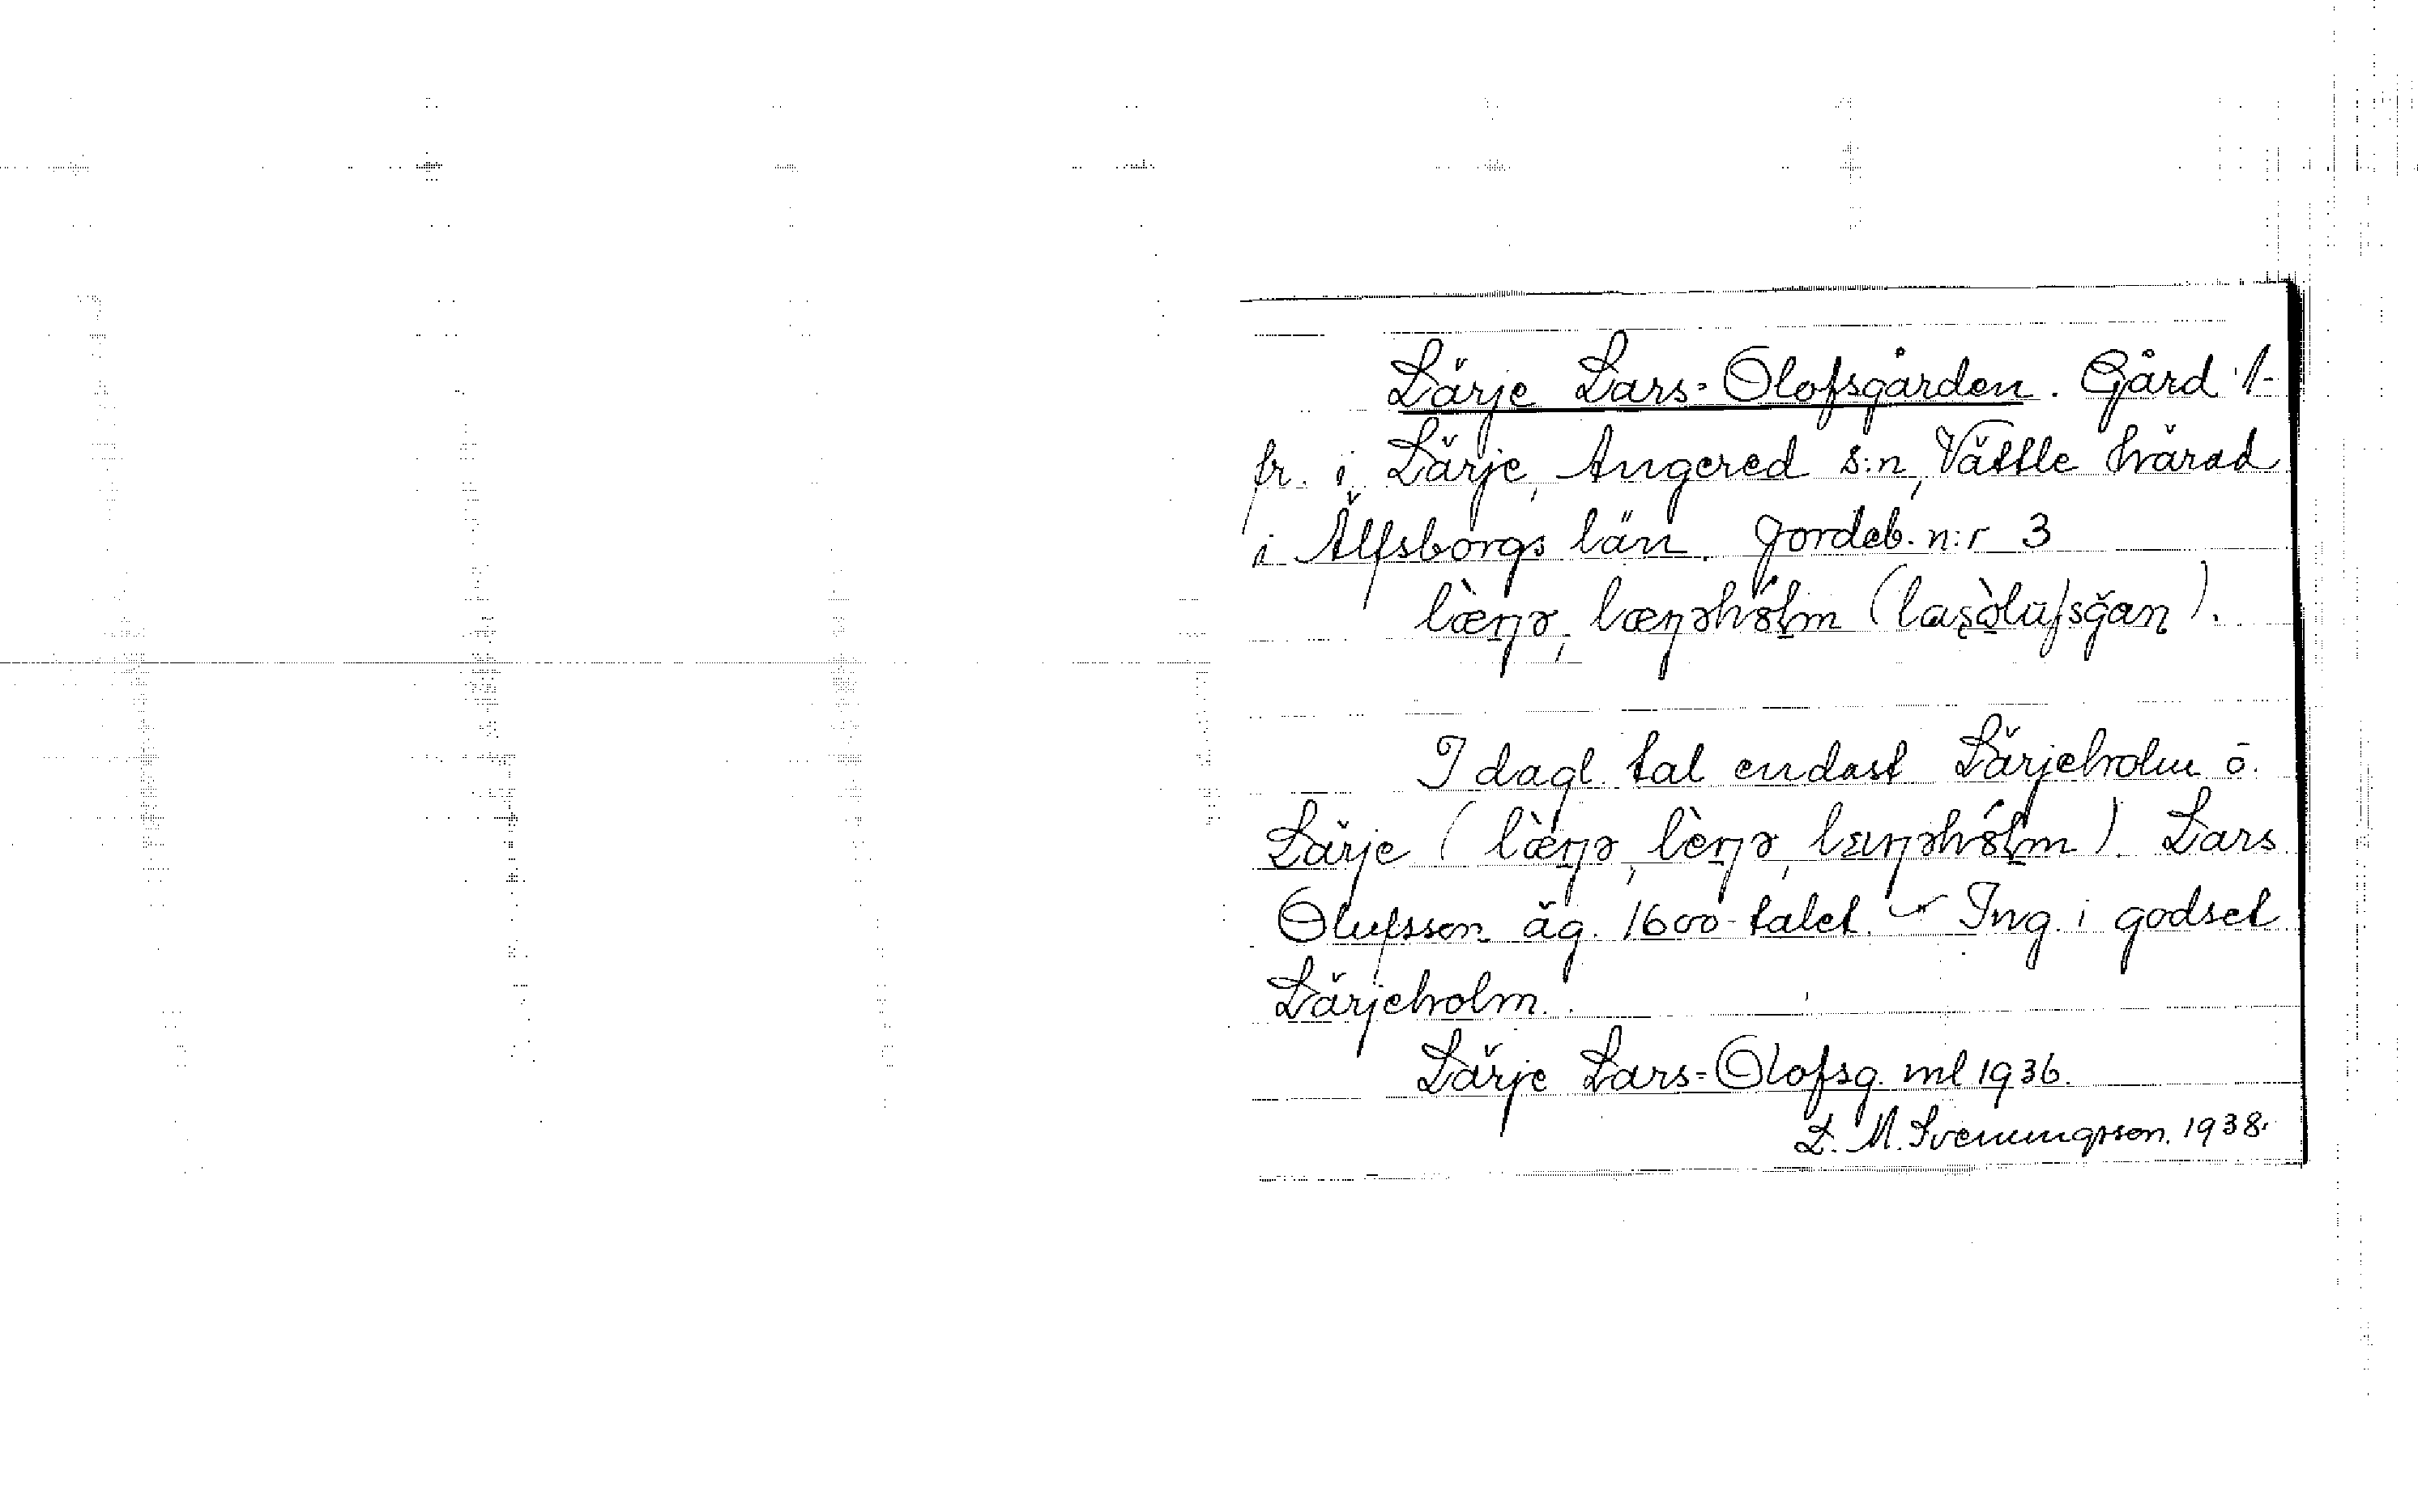 Lärje Lars-Olofsgården. Gård 1-
fr. i Lärje, Angered s:n, Vättle härad
i Älfsborgs län. Jordeb. n:r 3
I dagl. tal endast Lärjeholm o.
Lärje ( ). Lars
Olufsson äg. 1600-talet. Ing. i godset
Lärjeholm.
Lärje Lars-Olofsg. ml 1936.
L. M. Svenungsson. 1938.